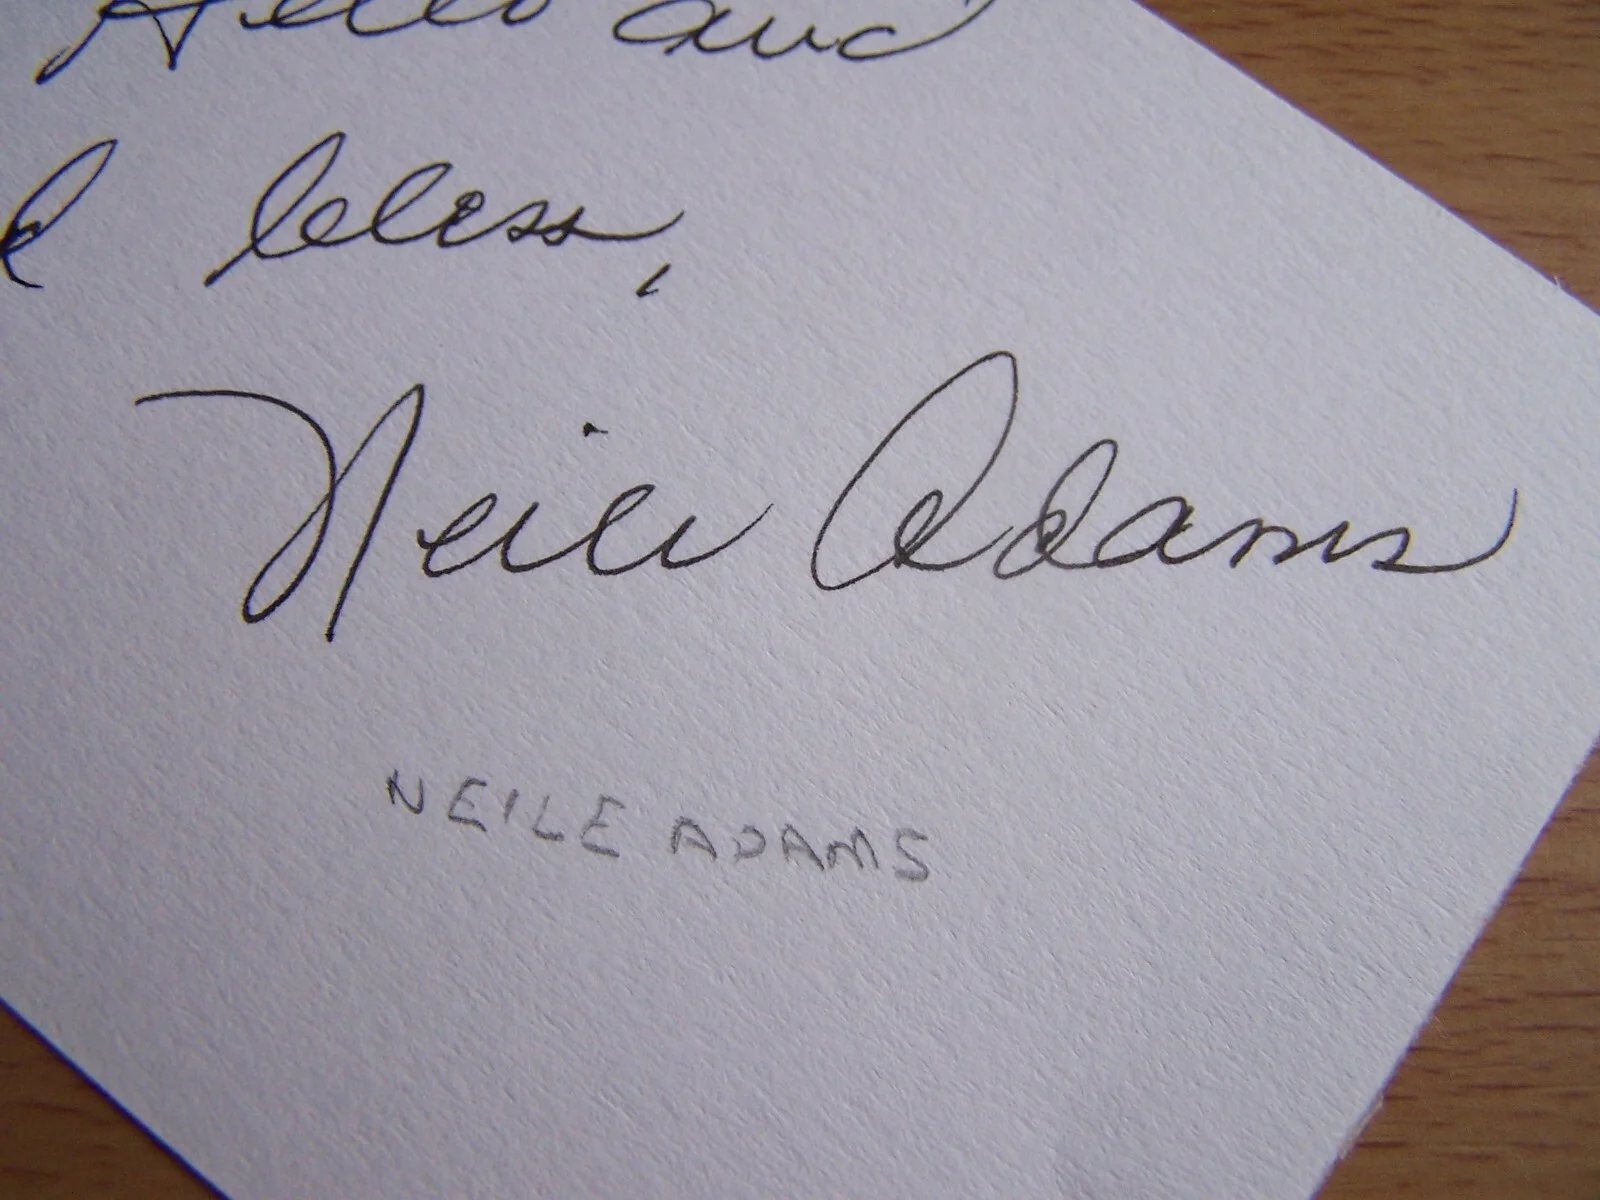 Hello and
d bless,
Neile Adams
NEILE ADAMS